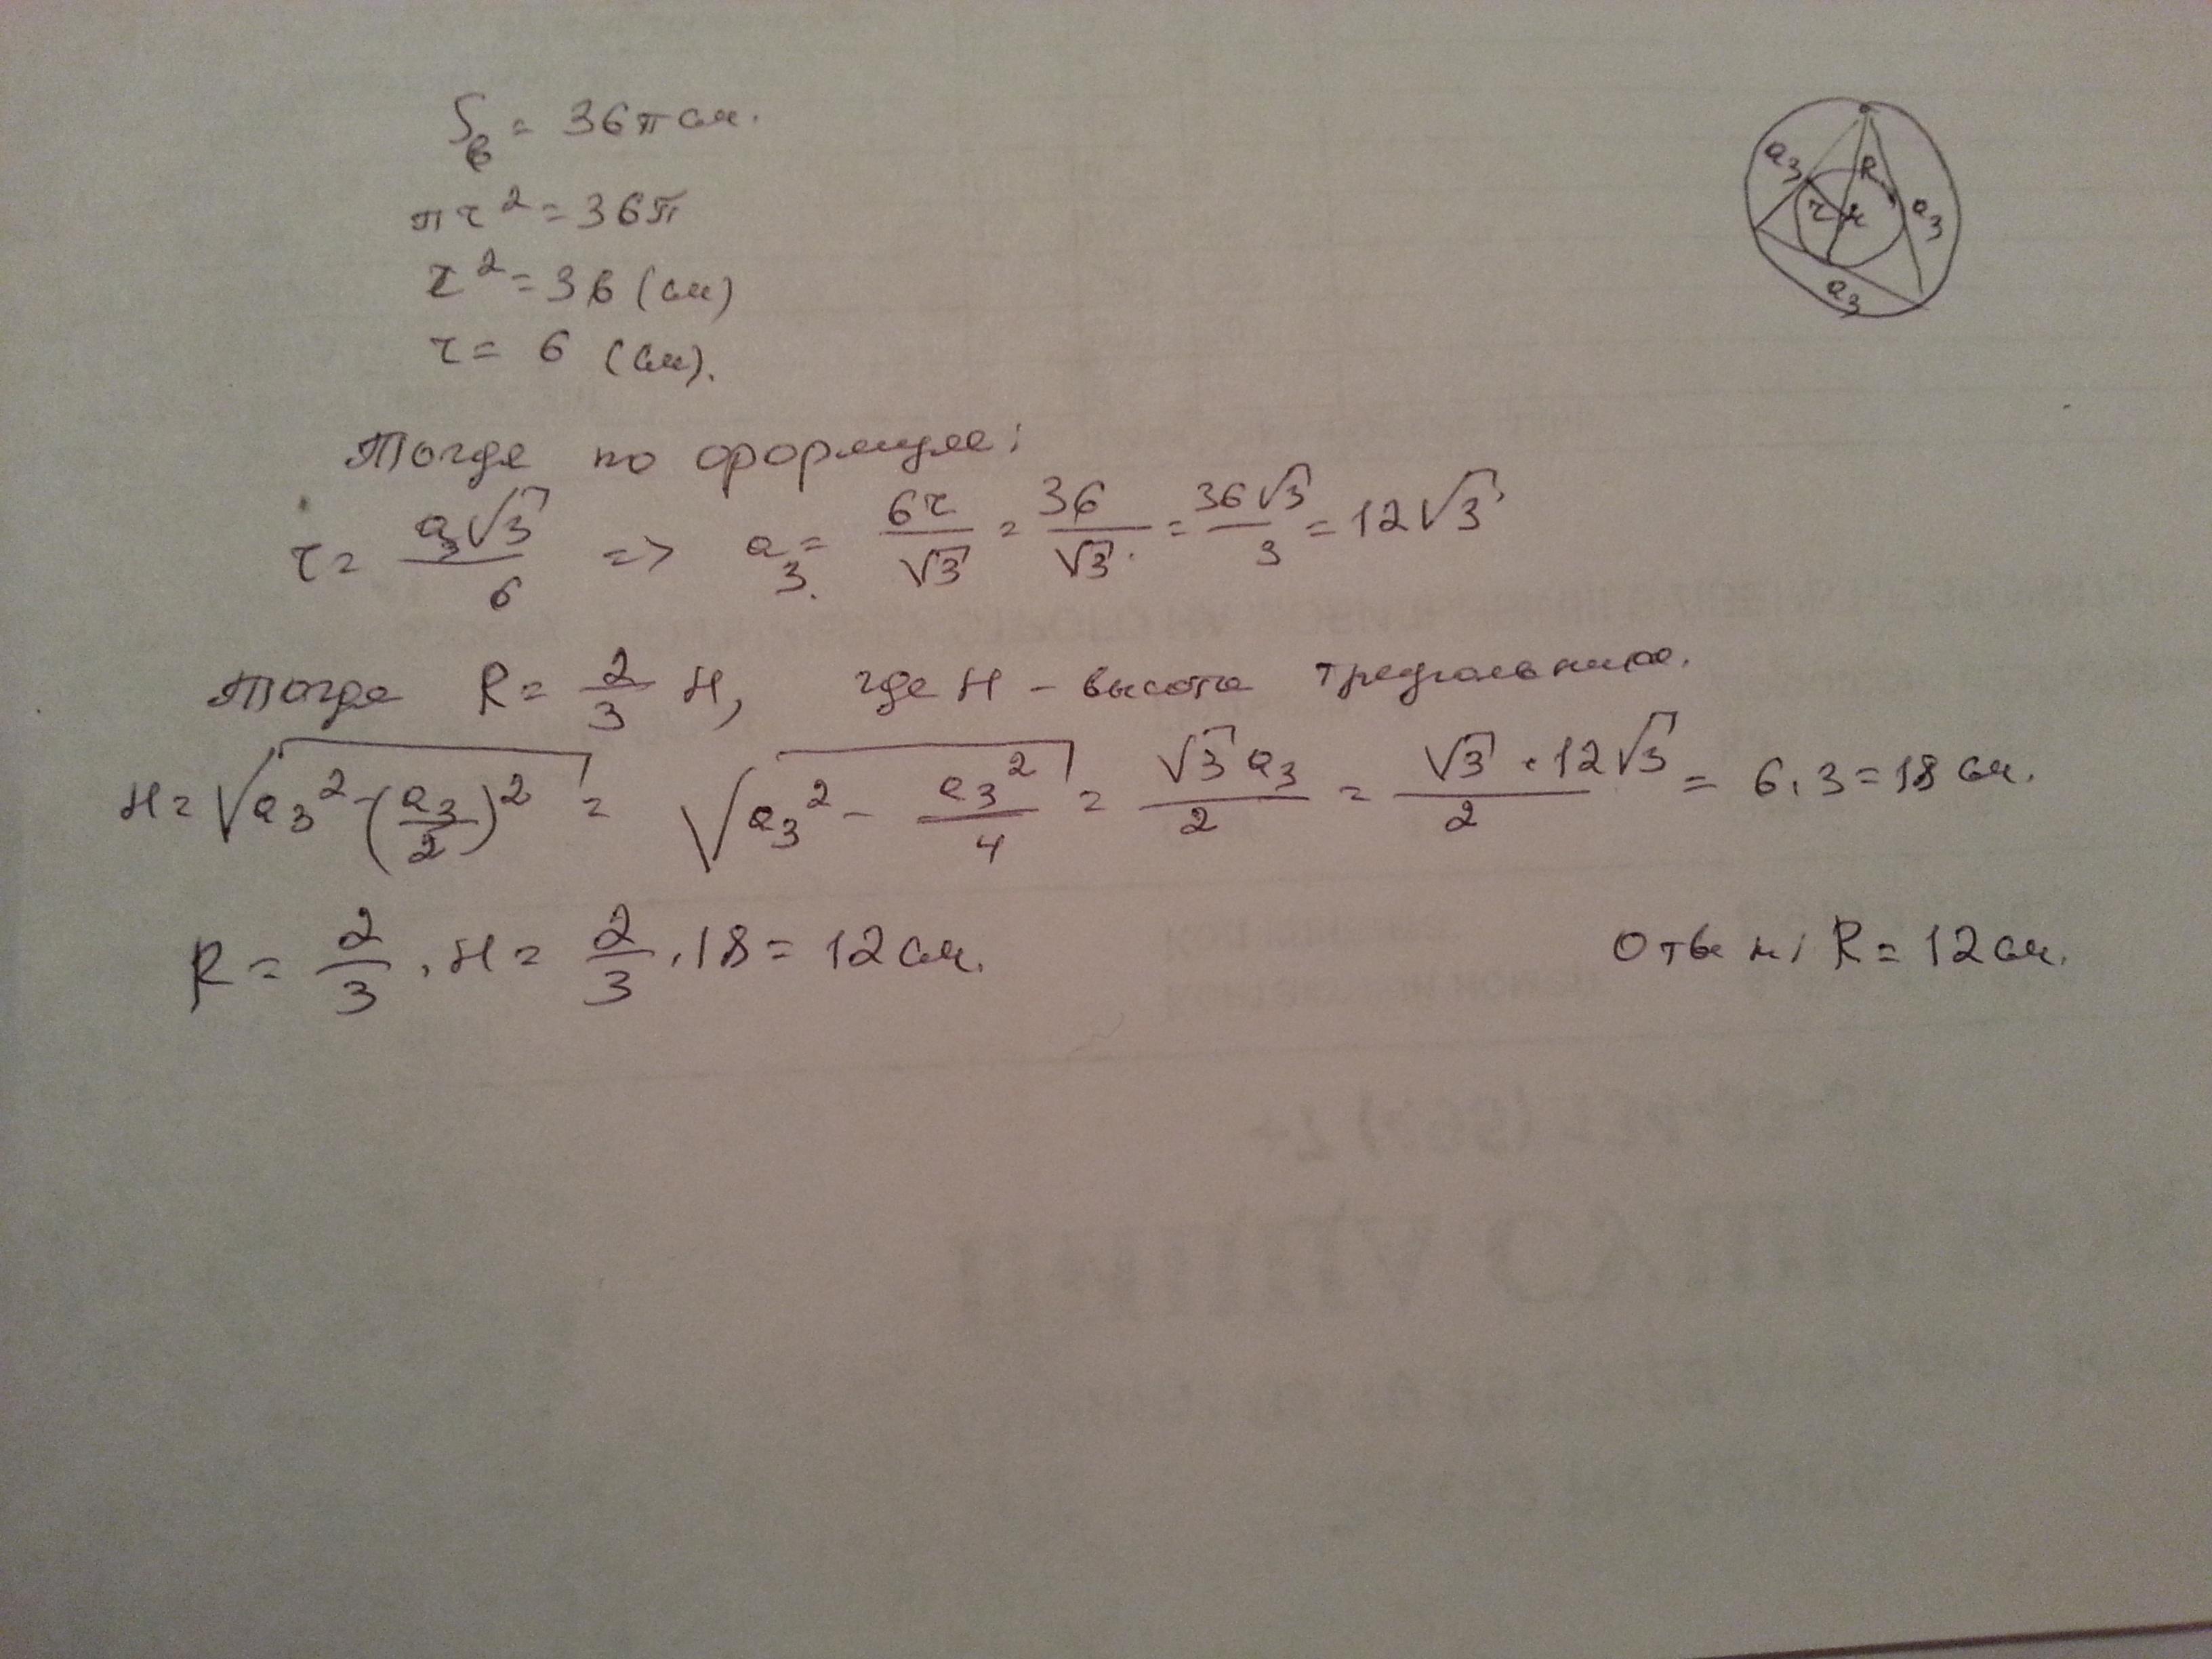 Sв = 36π см.
πr² = 36π
r² = 36 (см)
r = 6 (см).
Тогда по формуле:
r = a₃√3/6 => a₃ = 6r/√3 = 36/√3 = 36√3/3 = 12√3.
Тогда R = 2/3 H, где H – высота треугольника.
H = √(a₃² – (a₃/2)²) = √(a₃² – a₃²/4) = √3 a₃/2 = √3 · 12√3/2 = 6 · 3 = 18 см.
R = 2/3 · H = 2/3 · 18 = 12 см.
Ответ: R = 12 см.
a₃
R
r
a₃
a₃